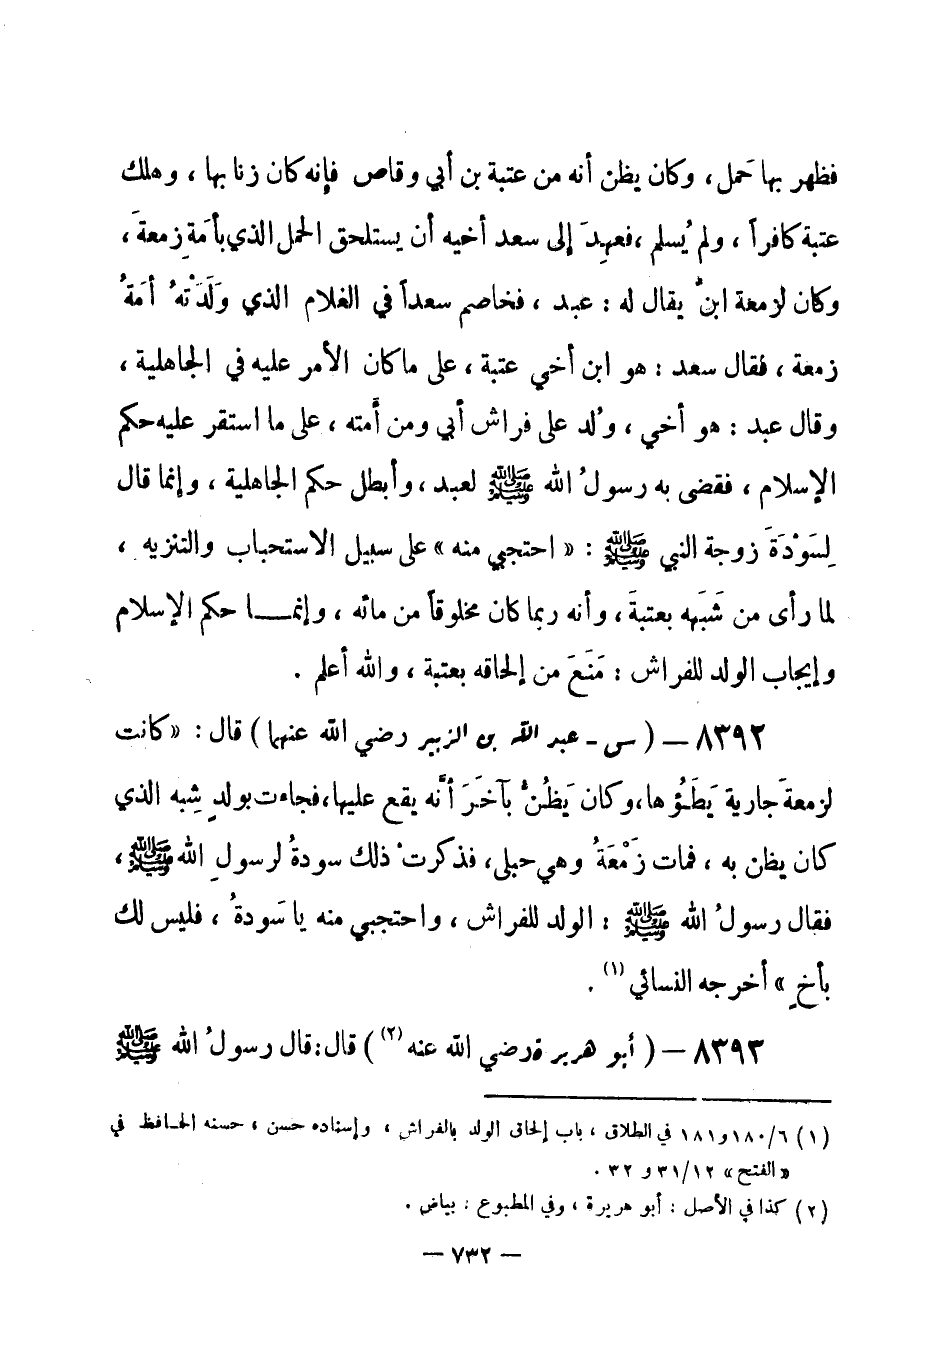 فظهر بها حَمل ، وكان يظن أنه من عتبة بن أبي وقاص فإنه كان زنا بها ، وهلك
عتبة كافراً ، ولم يُسلم ، فعهِدَ إلى سعد أخيه أن يستلحق الحمل الذي بأَمَةِ زمعةَ ،
وكان لزمعة ابنٌ يقال له : عبد ، فخاصم سعداً في الغلام الذي وَلَدَتْهُ أمَةُ
زمعة ، فقال سعد : هو ابن أخي عتبة ، على ما كان الأمر عليه في الجاهلية ،
وقال عبد : هو أخي ، وُلد على فراش أبي ومن أَمته ، على ما استقر عليه حكم
الإسلام ، فقضى به رسولُ الله ﷺ لعبد ، وأبطل حكم الجاهلية ، وإنما قال
لِسَوْدَةَ زوجة النبي ﷺ : « احتجبي منه » على سبيل الاستحباب والتنزيه ،
لما رأى من شَبَهه بعتبةَ ، وأنه ربما كان مخلوقاً من مائه ، وإنمـــا حكم الإسلام
وإيجاب الولد للفراش : مَنَعَ من إلحاقه بعتبة ، والله أعلم .
٨٣٩٢ – ( س - عبد الله بن الزبير رضي الله عنهما ) قال : « كانت
لزمعةَ جارية يَطَؤُها ، وكان يَظُنُّ بآخَرَ أنَّه يقع عليها ، فجاءت بولدٍ شِبه الذي
كان يظن به ، فمات زَمْعَةُ وهي حبلى ، فذكرتْ ذلك سودةُ لرسولِ الله ﷺ ،
فقال رسولُ الله ﷺ : الولد للفراش ، واحتجبي منه يا سَودةُ ، فليس لك
بأخٍ » أخرجه النسائي (١) .
٨٣٩٣ – ( أبو هريرة رضي الله عنه (٢) ) قال : قال رسولُ الله ﷺ
(١) ١٨٠/٦ و ١٨١ في الطلاق ، باب إلحاق الولد بالفراش ، وإسناده حسن ، حسنه الحـافظ في
« الفتح » ٣١/١٢ و ٣٢ .
(٢) كذا في الأصل : أبو هريرة ، وفي المطبوع : بياض .
– ٧٣٢ –